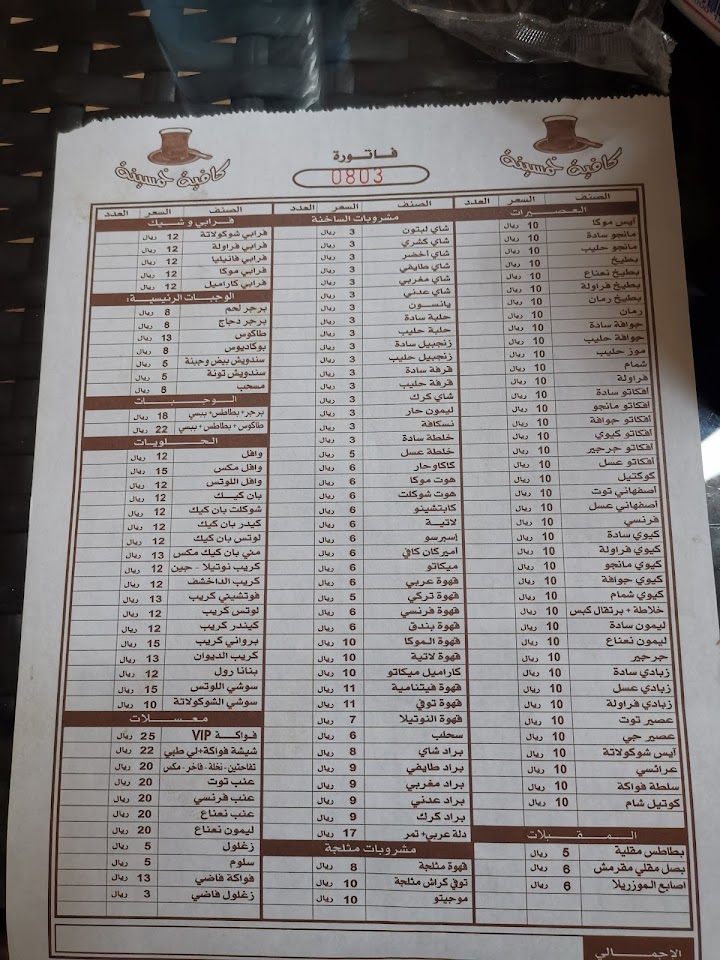 كافية خمسينة
فاتورة
0803
كافية خمسينة
الصنف السعر العدد
العصيرات
آيس موكا 10 ريال
مانجو سادة 10 ريال
مانجو حليب 10 ريال
بطيخ 10 ريال
بطيخ نعناع 10 ريال
بطيخ فراولة 10 ريال
بطيخ رمان 10 ريال
رمان 10 ريال
جوافة سادة 10 ريال
جوافة حليب 10 ريال
موز حليب 10 ريال
شمام 10 ريال
فراولة 10 ريال
أفكاتو سادة 10 ريال
أفكاتو مانجو 10 ريال
أفكاتو جوافة 10 ريال
أفكاتو كيوي 10 ريال
أفكاتو جرجير 10 ريال
أفكاتو عسل 10 ريال
كوكتيل 10 ريال
أصفهاني توت 10 ريال
أصفهاني عسل 10 ريال
فرنسي 10 ريال
كيوي سادة 10 ريال
كيوي فراولة 10 ريال
كيوي مانجو 10 ريال
كيوي جوافة 10 ريال
كيوي شمام 10 ريال
خلاطة + برتقال كبس 10 ريال
ليمون سادة 10 ريال
ليمون نعناع 10 ريال
جرجير 10 ريال
زبادي سادة 10 ريال
زبادي عسل 10 ريال
زبادي فراولة 10 ريال
عصير توت 10 ريال
عصير جي 10 ريال
آيس شوكولاتة 10 ريال
عرائسي 10 ريال
سلطة فواكة 10 ريال
كوتيل شام 10 ريال
المقبلات
بطاطس مقلية 5 ريال
بصل مقلي مقرمش 6 ريال
اصابع الموزريلا 6 ريال
الصنف السعر العدد
مشروبات الساخنة
شاي ليتون 3 ريال
شاي كشري 3 ريال
شاي أخضر 3 ريال
شاي طايفي 3 ريال
شاي مغربي 3 ريال
شاي عدني 3 ريال
يانسون 3 ريال
حلبة سادة 3 ريال
حلبة حليب 3 ريال
زنجبيل سادة 3 ريال
زنجبيل حليب 3 ريال
قرفة سادة 3 ريال
قرفة حليب 3 ريال
شاي كرك 3 ريال
ليمون حار 3 ريال
نسكافة 3 ريال
خلطة سادة 3 ريال
خلطة عسل 5 ريال
كاكاوحار 6 ريال
هوت موكا 6 ريال
هوت شوكلت 6 ريال
كابتشينو 6 ريال
لاتية 6 ريال
إسبرسو 6 ريال
أميركان كافي 6 ريال
ميكاتو 6 ريال
قهوة عربي 6 ريال
قهوة تركي 5 ريال
قهوة فرنسي 6 ريال
قهوة بندق 6 ريال
قهوة الموكا 10 ريال
قهوة لاتية 10 ريال
كاراميل ميكاتو 10 ريال
قهوة فيتنامية 11 ريال
قهوة توفي 11 ريال
قهوة النوتيلا 7 ريال
سحلب 6 ريال
براد شاي 8 ريال
براد طايفي 9 ريال
براد مغربي 9 ريال
براد عدني 9 ريال
براد كرك 9 ريال
دلة عربي+ تمر 17 ريال
مشروبات مثلجة
قهوة مثلجة 8 ريال
توفي كراش مثلجة 10 ريال
موجيتو 10 ريال
الصنف السعر العدد
فرابي و شيك
فرابي شوكولاتة 12 ريال
فرابي فراولة 12 ريال
فرابي فانيليا 12 ريال
فرابي موكا 12 ريال
فرابي كاراميل 12 ريال
الوجبات الرئيسية:
برجر لحم 8 ريال
برجر دجاج 8 ريال
طاكوس 13 ريال
بوكاديوس 8 ريال
سندويش بيض وجبنة 5 ريال
سندويش تونة 5 ريال
مسحب 8 ريال
الوجبات
برجر+ بطاطس+ ببسي 18 ريال
طاكوس + بطاطس + ببسي 22 ريال
الحلويات
وافل 12 ريال
وافل مكس 15 ريال
وافل اللوتس 12 ريال
بان كيك 12 ريال
شوكلت بان كيك 12 ريال
كيدر بان كيك 12 ريال
لوتس بان كيك 12 ريال
مني بان كيك مكس 13 ريال
كريب نوتيلا - جبن 12 ريال
كريب الداخشف 12 ريال
فوتشيني كريب 13 ريال
لوتس كريب 12 ريال
كيندر كريب 12 ريال
برواني كريب 15 ريال
كريب الديوان 13 ريال
بنانا رول 12 ريال
سوشي اللوتس 15 ريال
سوشي الشوكولاتة 10 ريال
معسلات
فواكة VIP 25 ريال
شيشة فواكة+لي طبي 22 ريال
تفاحتين - نخلة - فاخر - مكس 20 ريال
عنب توت 20 ريال
عنب فرنسي 20 ريال
عنب نعناع 20 ريال
ليمون نعناع 20 ريال
زغلول 5 ريال
سلوم 5 ريال
فواكة فاضي 13 ريال
زغلول فاضي 3 ريال
الإجمالي